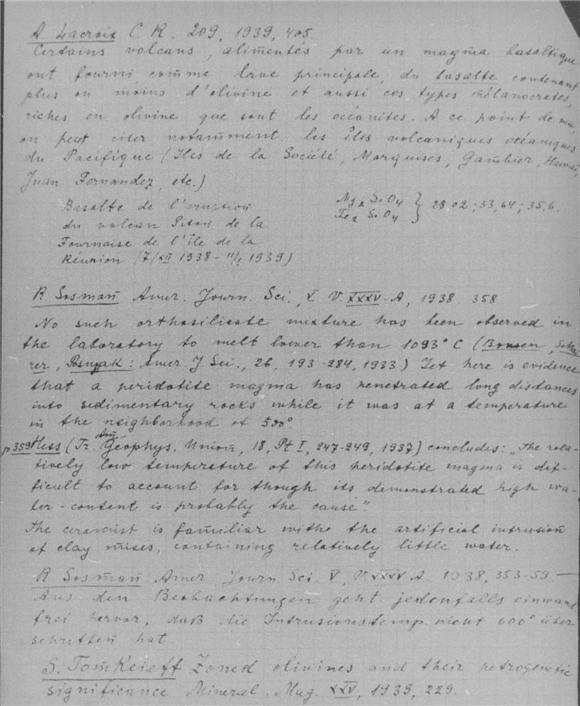 A. Lacroix C. R. 209, 1939, 405.
Certains volcans, alimentés par un magma basaltique
ont fourni comme lave principale, du basalte contenant
plus ou moins d'olivine et aussi ces types mélanocrates,
riches en olivine que sont les océanites. A ce point de vue
on peut citer notamment les îles volcaniques océaniques
du Pacifique (Iles de la Société, Marquises, Gambier, Hawai,
Juan Fernandez, etc.)
Basalte de l'éruption
du volcan Piton de la
Fournaise de l'île de la
Réunion (7/XII 1938 - 1939)
Mg2 SiO4
Fe2 SiO4 } 28.02; 33,64; 35,6.
R Sosman Amer. Journ. Sci., V. XXXV-A, 1938 358
No such orthosilicate mixture has been observed in
the laboratory to melt lower than 1093° C (Bowen,
Posnjak: Amer J Sci., 26, 193-284, 1933) Yet here is evidence
that a peridotite magma has penetrated long distances
into sedimentary rocks while it was at a temperature
in the neighborhood of 500°
p 359 Hess (Tr. Am. Geophys. Union, 18, Pt I, 247-249, 1937) concludes: „The rela-
tively low temperature of this peridotite magma is dif-
ficult to account for though its demonstrated high wa-
ter-content is probably the cause"
The ceramist is familiar withe the artificial intrusion
of clay mixes, containing relatively little water.
R Sosman Amer. Journ Sci. V, V. XXXV A. 1938, 353-59 —
Aus den Beobachtungen geht jedenfalls einwand
frei hervor, daß die Intrusionstemp. nicht 600° über
schritten hat.
S. Tomkeieff Zoned olivines and their petrogenetic
significance Mineral. Mag. XXV, 1939, 229.